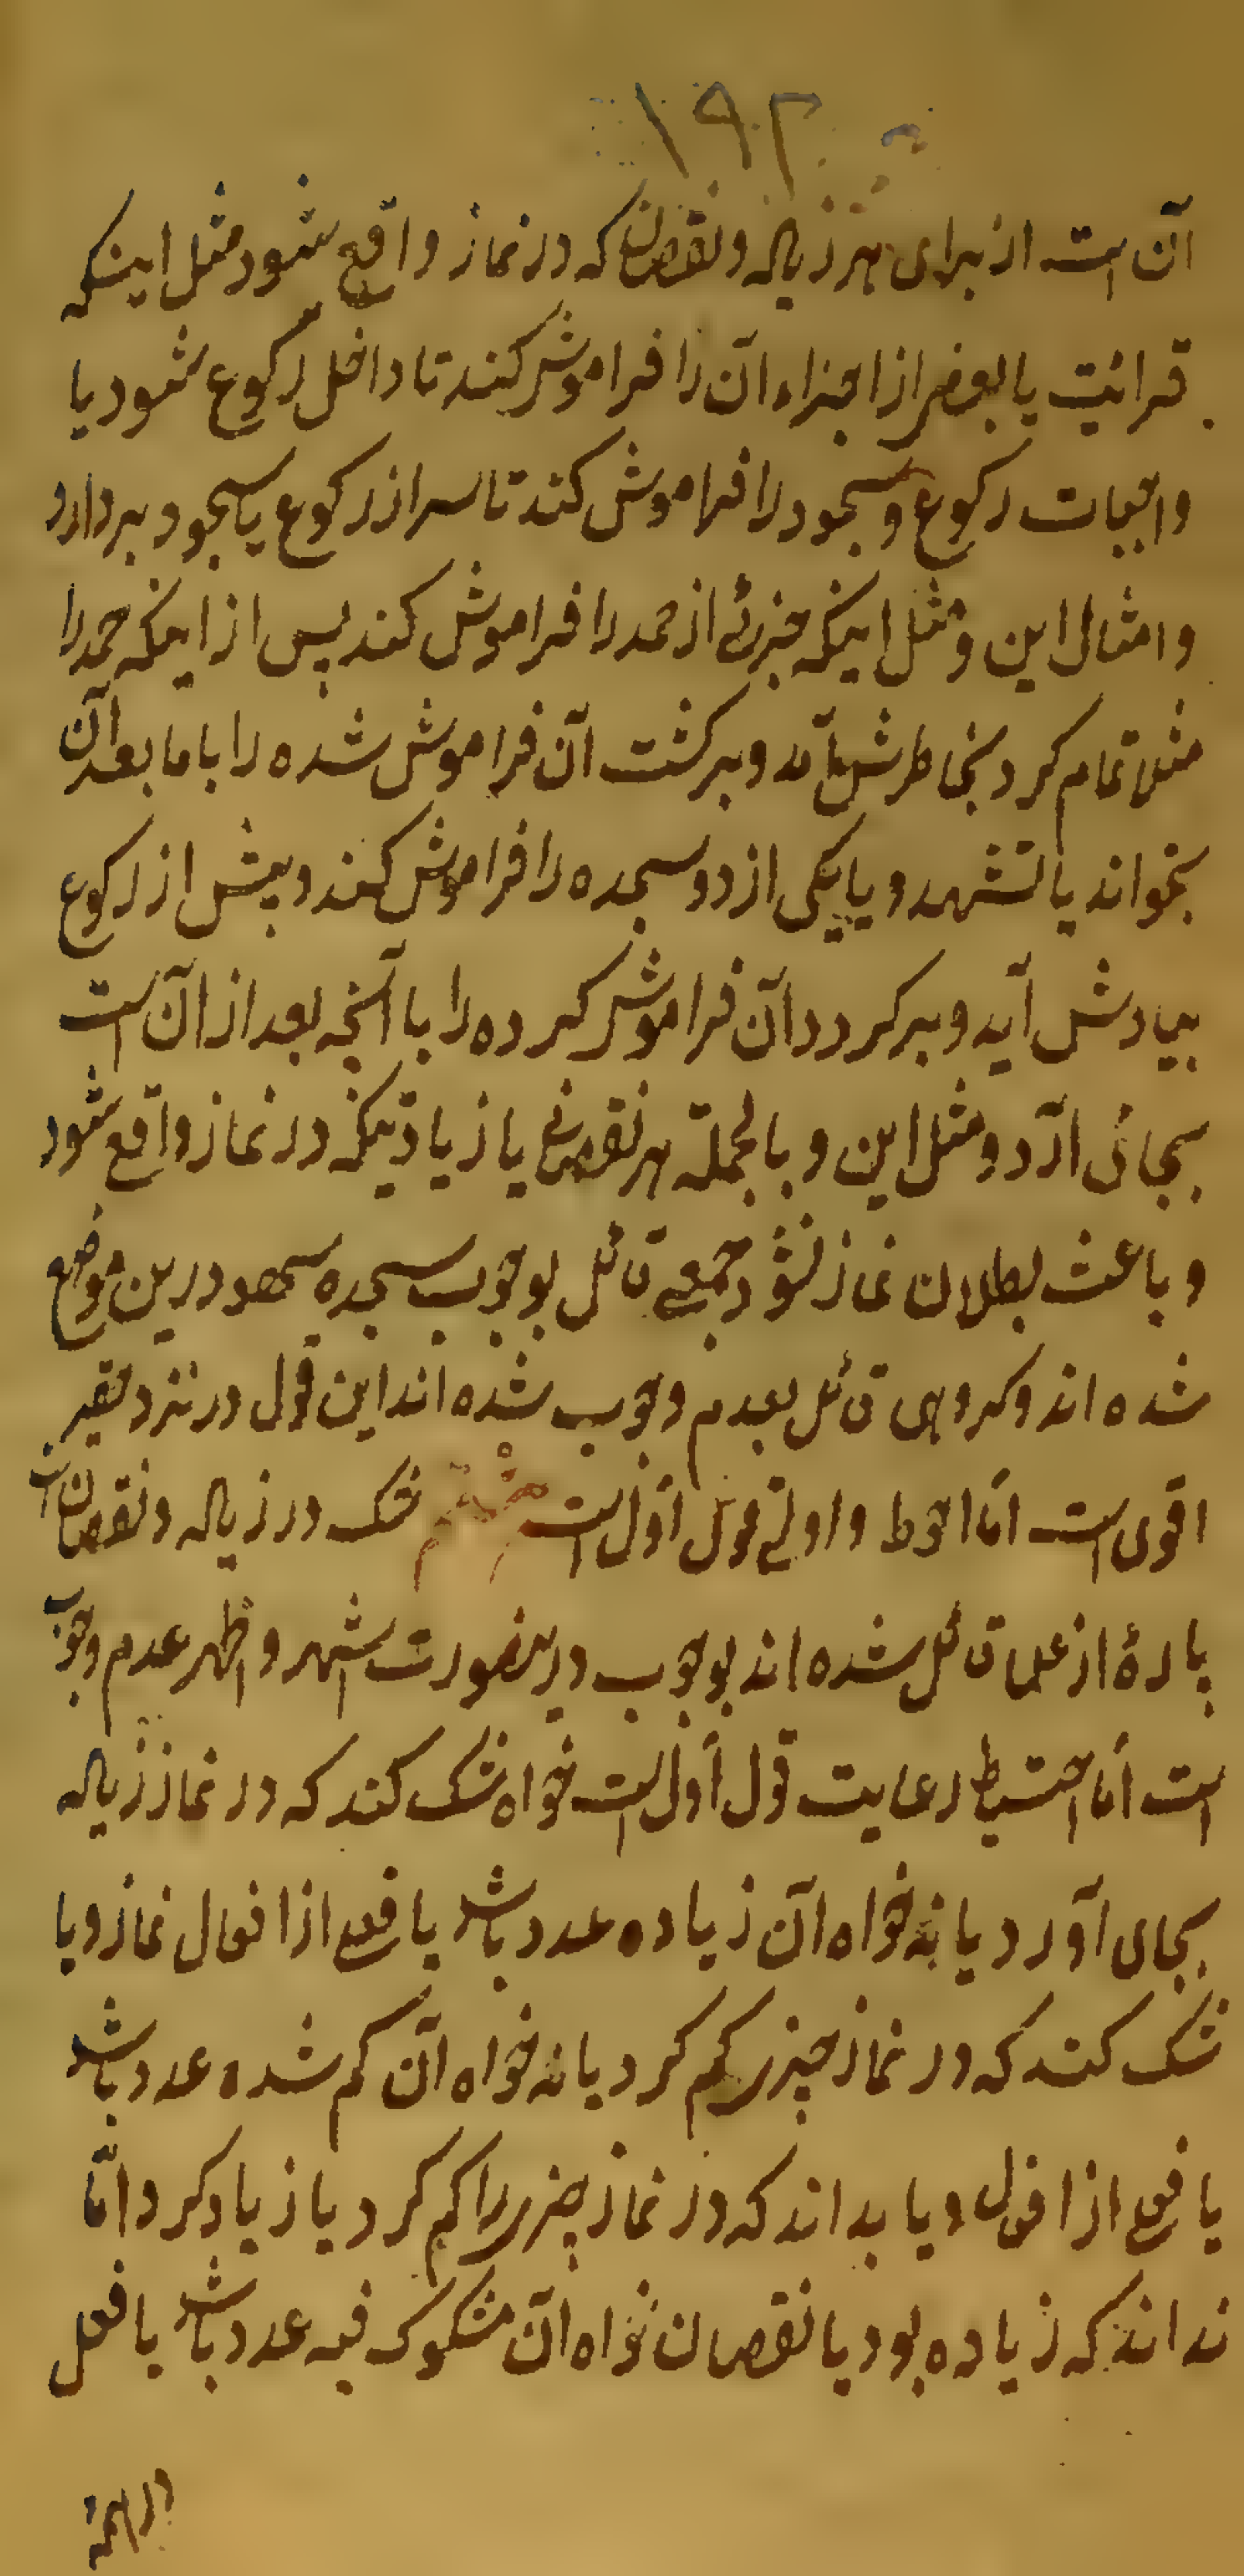 ۱۹۲
آن است از برای هر زیاده و نقصان که در نماز واقع شود مثل اینکه
قرائت یا بعضی از اجزاء آن را فراموش کند تا داخل رکوع شود یا
واجبات رکوع و سجود را فراموش کند تا سر از رکوع یا سجود بردارد
و امثال این و مثل اینکه جزئے از حمد را فراموش کند پس از اینکه حمد را
مثلا تمام کرد بخاطرش آمد و برکشت آن فراموش شده را با ما بعد آن
بخواند یا تشهد و یا یکی از دو سجده را فراموش کند و پیش از رکوع
بیادش آید و برکردد آن فراموش کرده را با آنچه بعد از آن است
بجائی آرد و مثل این و بالجملة هر نقصانے یا زیادتیکه در نماز واقع شود
و باعث بطلان نماز نشود جمعے قائل بوجوب سجده سهو درین موضع
شده اند و کروهی قائل بعدم وجوب شده اند این قول در نزد حقیر
اقوی است امّا احوط و اولے قول اوّل است هشتم شک در زیاده و نقصان است
پارهٔ از علما قائل شده اند بوجوب درینصورت اشهر و اظهر عدم وجوب
است امّا احتیاط رعایت قول اوّل است خواه شک کند که در نماز زیاده
بجای آورد یا نه خواه آن زیاده عدد باشد یا فعلے از افعال نماز و یا
شک کند که در نماز چیزی کم کرد یا نه خواه آن کم شده عدد باشد
یا فعلے از افعال و یا بداند که در نماز چیزی را کم کرد یا زیاد کرد امّا
نداند که زیاده بود یا نقصان خواه آن مشکوک فیه عدد باشد یا فعل